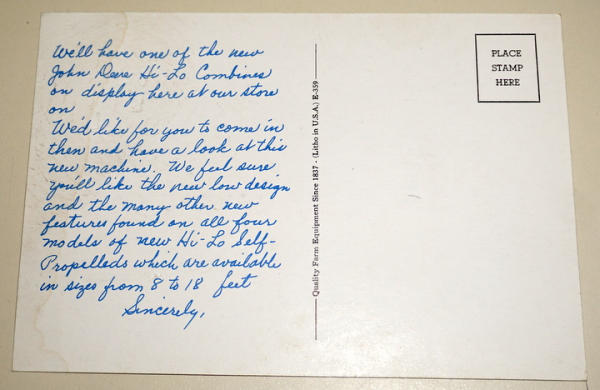 We'll have one of the new
John Deere Hi-Lo Combines
on display here at our store
on
We'd like for you to come in
then and have a look at this
new machine. We feel sure
you'll like the new low design
and the many other new
features found on all four
models of new Hi-Lo Self-
Propelleds which are available
in sizes from 8 to 18 feet
Sincerely,
Quality Farm Equipment Since 1837 - (Litho in U.S.A.) E-359
PLACE
STAMP
HERE